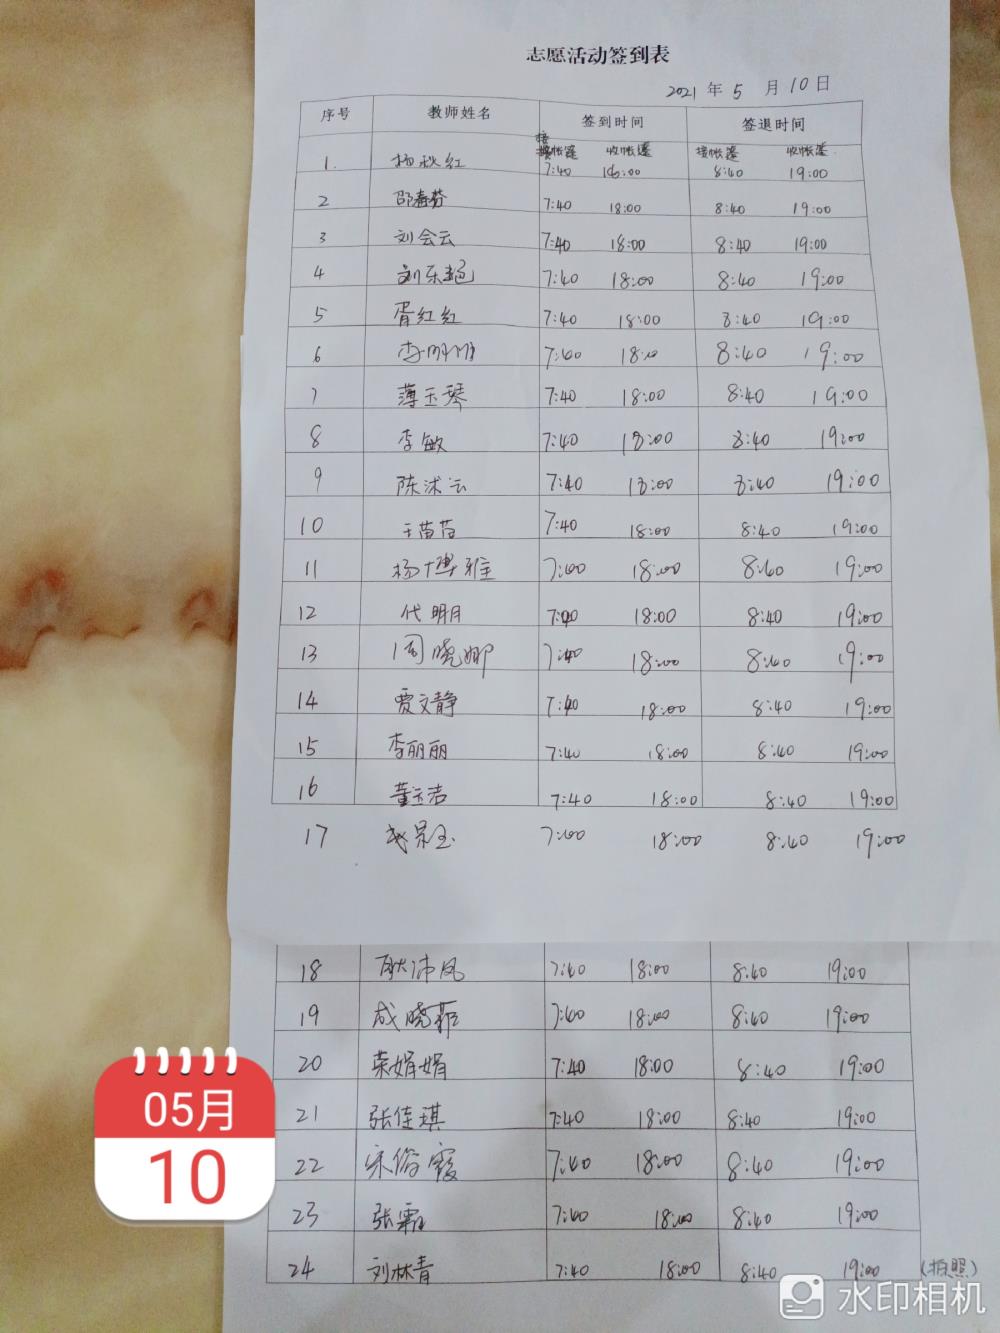 志愿活动签到表
2021 年 5 月 10 日
序号 教师姓名 签到时间 签退时间
接帐篷 收帐篷 接帐篷 收帐篷
1. 杨秋红 7:40 18:00 8:40 19:00
2 邵春芬 7:40 18:00 8:40 19:00
3 刘会云 7:40 18:00 8:40 19:00
4 刘乐艳 7:40 18:00 8:40 19:00
5 胥红红 7:40 18:00 8:40 19:00
6 李 7:40 18:00 8:40 19:00
7 薄玉琴 7:40 18:00 8:40 19:00
8 李敏 7:40 18:00 8:40 19:00
9 陈沭云 7:40 18:00 8:40 19:00
10 王苗苗 7:40 18:00 8:40 19:00
11 杨博雅 7:00 18:00 8:40 19:00
12 代明月 7:00 18:00 8:40 19:00
13 周晓娜 7:40 18:00 8:40 19:00
14 贾文静 7:40 18:00 8:40 19:00
15 李丽丽 7:40 18:00 8:40 19:00
16 董玉洁 7:40 18:00 8:40 19:00
17 7:00 18:00 8:40 19:00
18 耿沛凤 7:40 18:00 8:40 19:00
19 成晓菲 7:40 18:00 8:40 19:00
20 荣娟娟 7:40 18:00 8:40 19:00
21 张佳琪 7:40 18:00 8:40 19:00
22 宋俗霞 7:40 18:00 8:40 19:00
23 张霜 7:40 18:00 8:40 19:00
24 刘林青 7:40 18:00 8:40 19:00 (拍照)
05月
10
水印相机